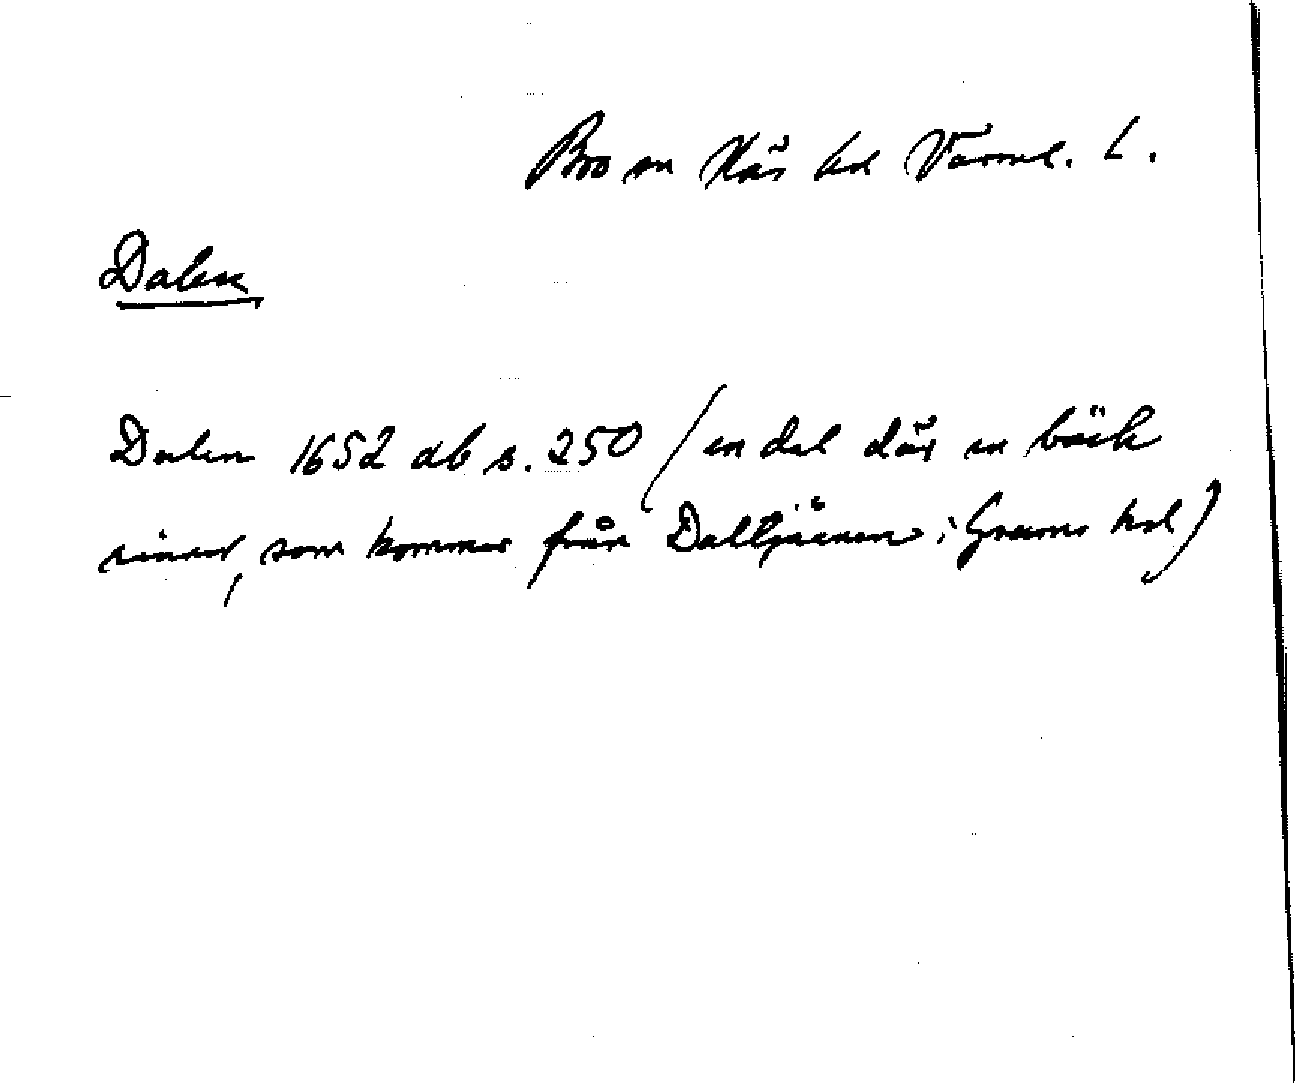 Bro sn Näs hd Värml. L.
Dalen
Dalen 1652 db s. 250 (en dal där en bäck
rinner, som kommer från Daltjärnen i Grums hd)